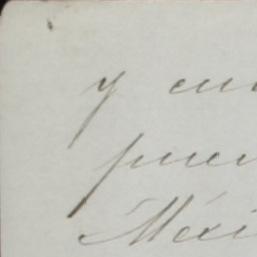 y cu
puer
Méxi